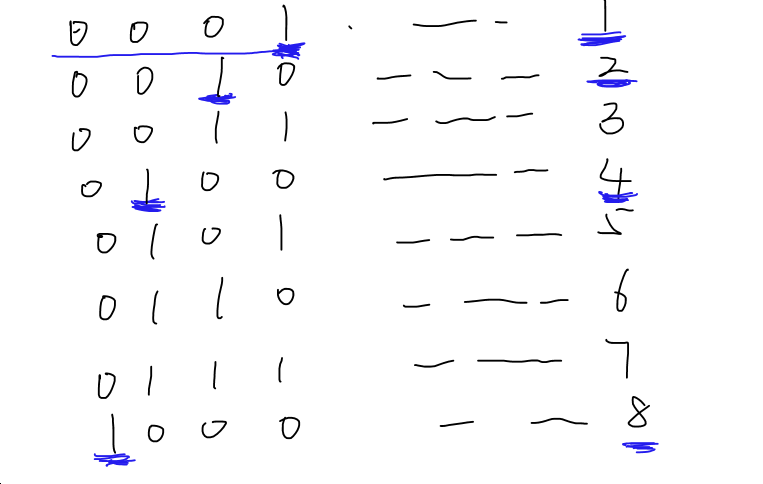 0 0 0 1 — - 1
0 0 1 0 — — — 2
0 0 1 1 — — — 3
0 1 0 0 — — 4
0 1 0 1 — — — 5
0 1 1 0 — — — 6
0 1 1 1 — — 7
1 0 0 0 — — 8